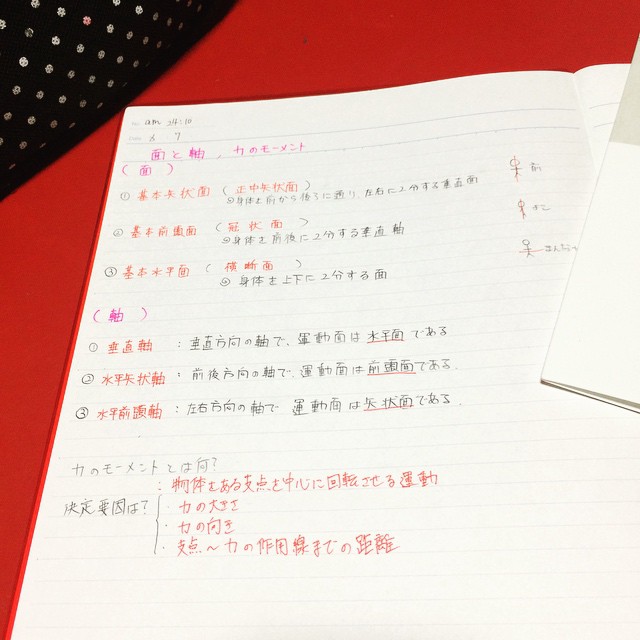 am 24:10
2 7
面と軸, 力のモーメント
(面)
① 基本矢状面 (正中矢状面)
→身体を前から後ろに通り、左右に2分する垂直面
前
② 基本前頭面 (冠状面)
→身体を前後に2分する垂直軸
③ 基本水平面 (横断面)
→身体を上下に2分する面
(軸)
① 垂直軸 : 垂直方向の軸で、運動面は水平面である
② 水平矢状軸 : 前後方向の軸で、運動面は前頭面である.
③ 水平前頭軸 : 左右方向の軸で 運動面は矢状面である.
力のモーメントとは何?
: 物体をある支点を中心に回転させる運動
決定要因は? ・力の大きさ
・力の向き
・支点〜力の作用線までの距離